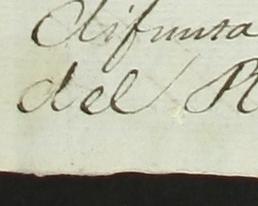 difunta
del R